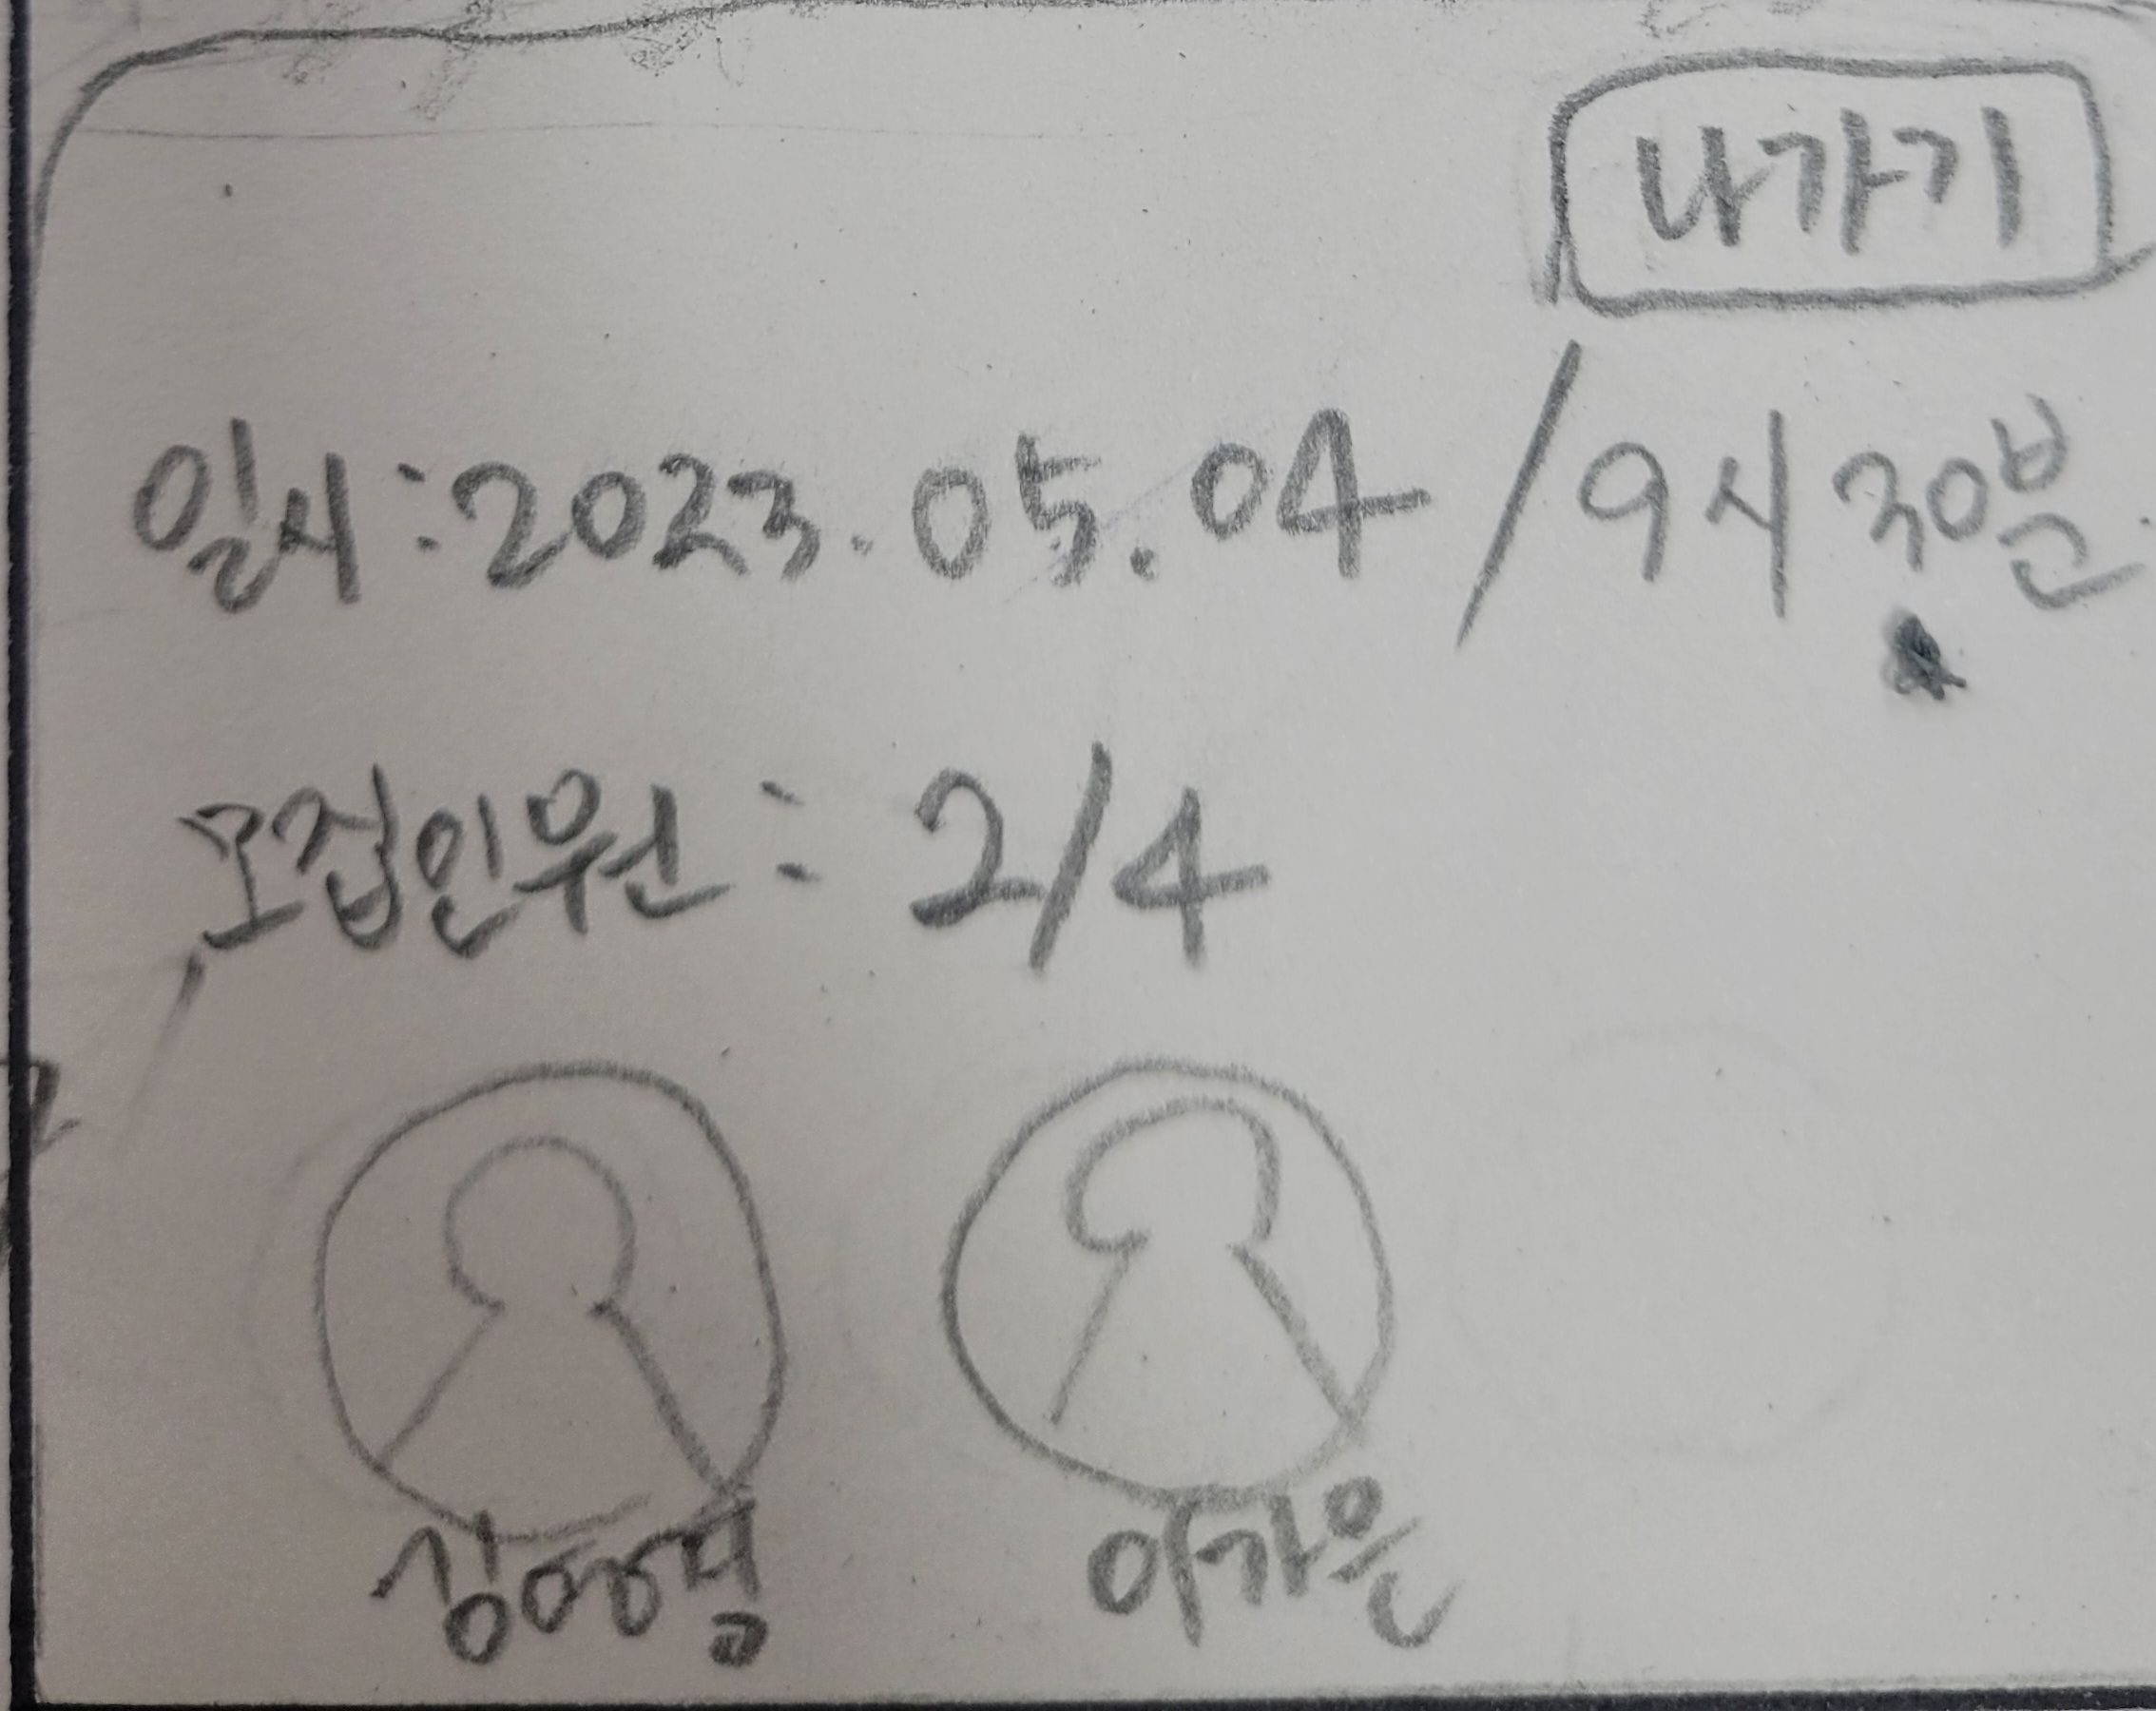 나가기
일시:2023.05.04 / 9시 30분
모집인원: 2/4
이가은